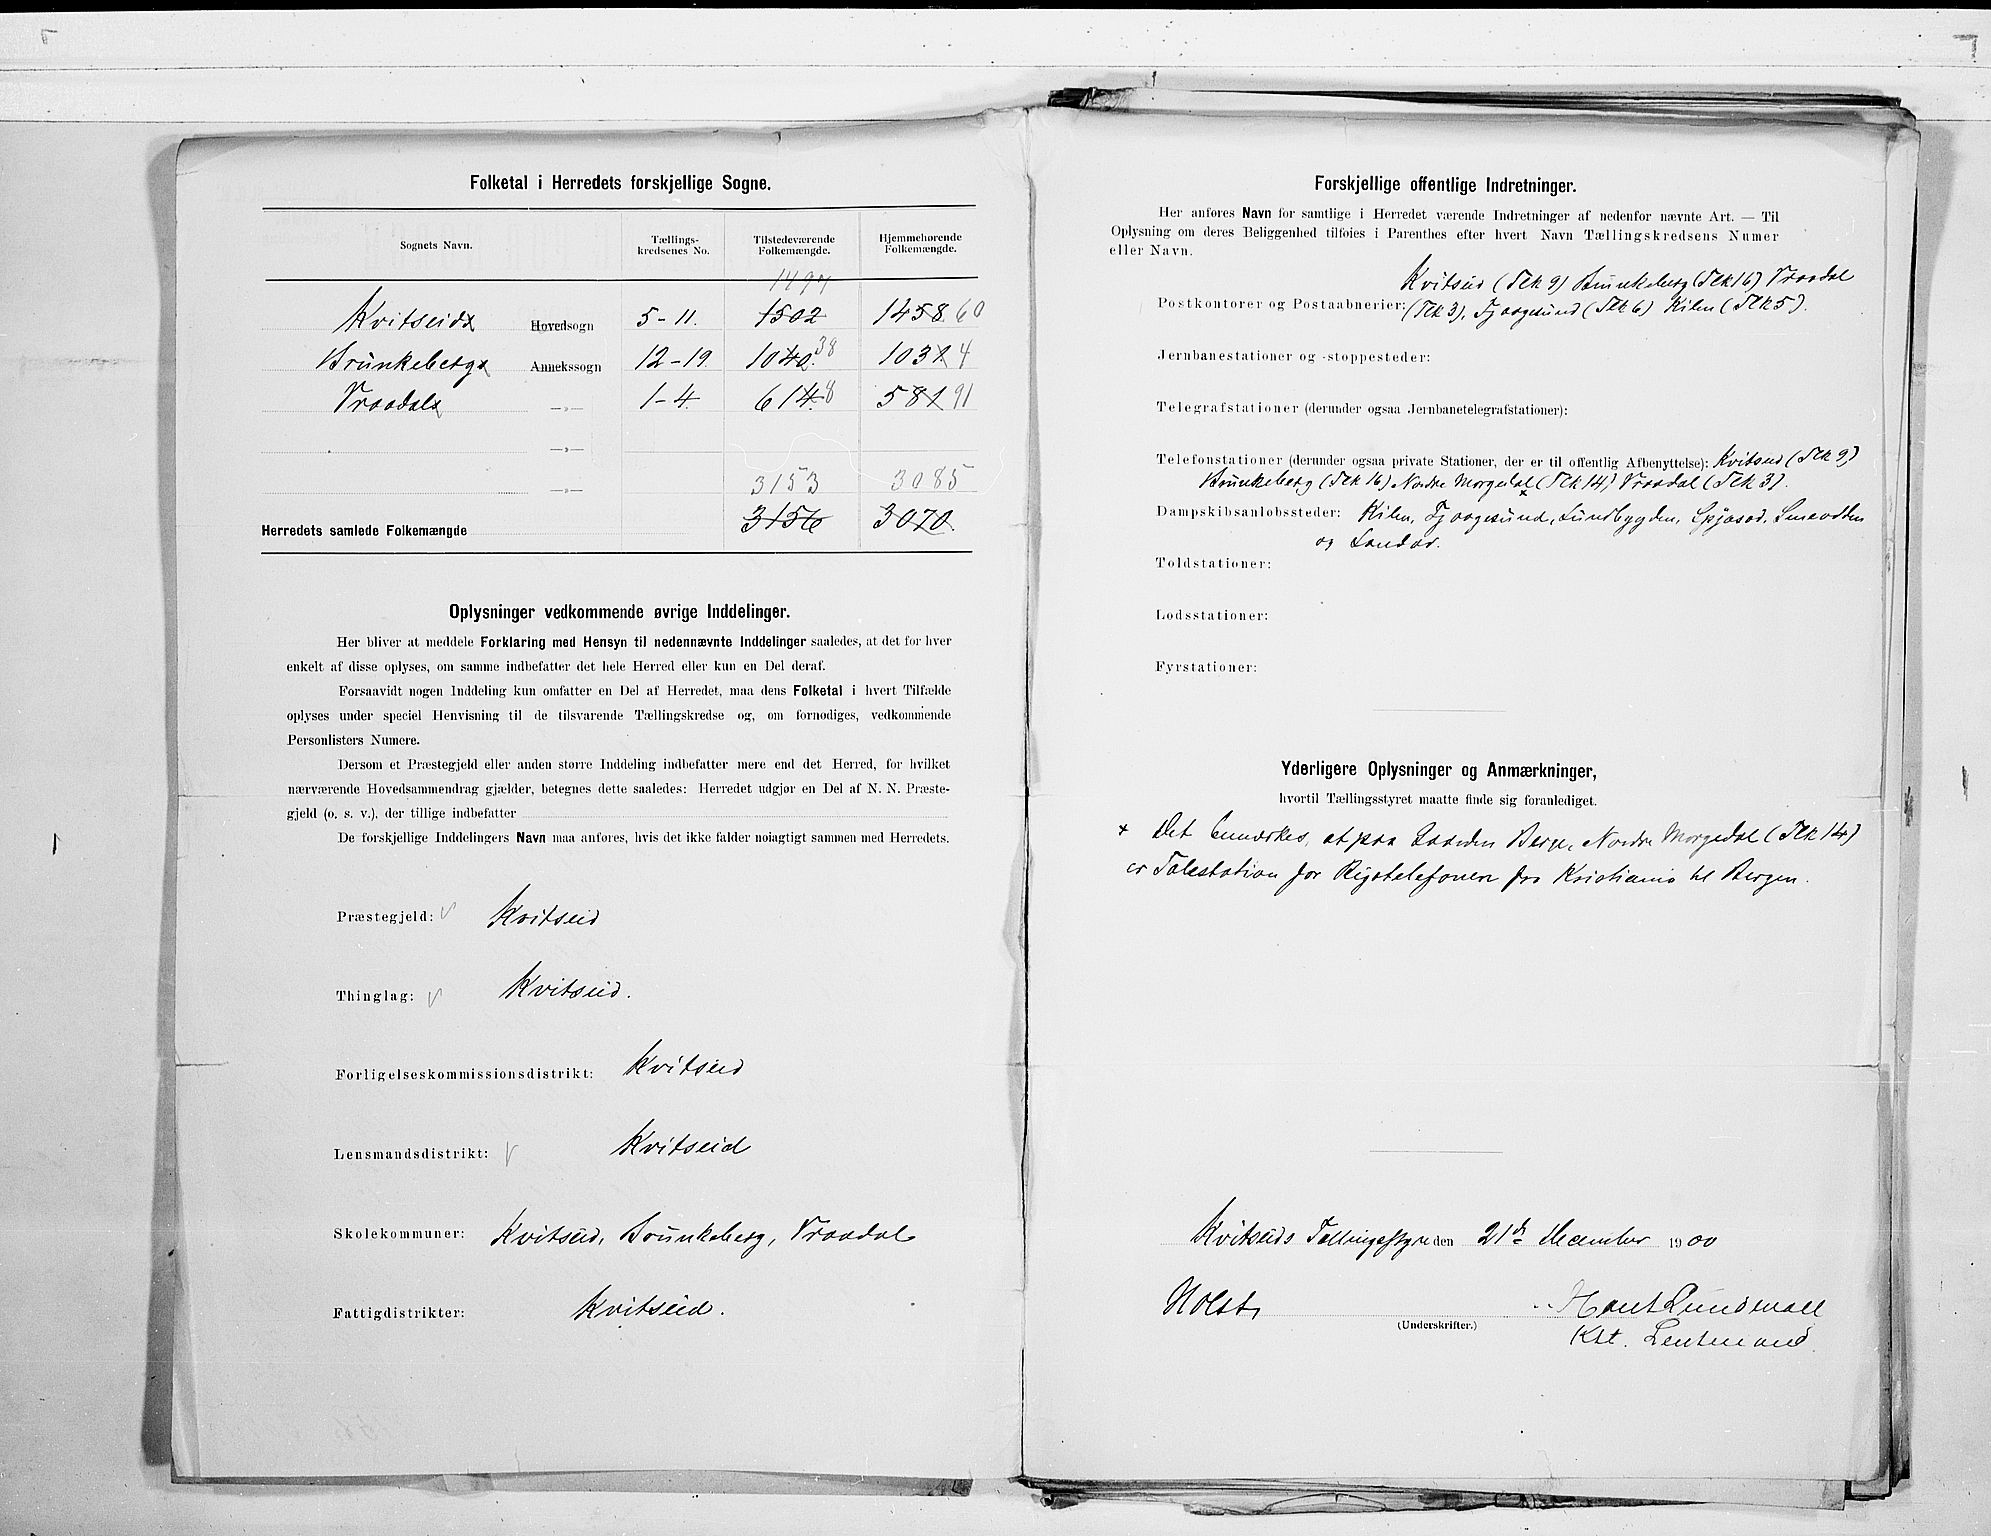 Folketal i Herredets forskjellige Sogne.
Sognets Navn.
Tællings-
kredsenes No.
Tilstedeværende
Folkemængde.
Hjemmehørende
Folkemængde.
1497
Kvitseids Hovedsogn 5-11. 1502 1458 60
Brunkebergs Annekssogn 12-19. 1040 38 1031 4
Vraadals —„— 1-4. 614 8 581 91
—„—
—„— 3153 3085
Herredets samlede Folkemængde 3156 3070.
Oplysninger vedkommende øvrige Inddelinger.
Her bliver at meddele Forklaring med Hensyn til nedennævnte Inddelinger saaledes, at det for hver
enkelt af disse oplyses, om samme indbefatter det hele Herred eller kun en Del deraf.
Forsaavidt nogen Inddeling kun omfatter en Del af Herredet, maa dens Folketal i hvert Tilfælde
oplyses under speciel Henvisning til de tilsvarende Tællingskredse og, om fornødiges, vedkommende
Personlisters Numere.
Dersom et Præstegjeld eller anden større Inddeling indbefatter mere end det Herred, for hvilket
nærværende Hovedsammendrag gjælder, betegnes dette saaledes: Herredet udgjør en Del af N. N. Præste-
gjeld (o. s. v.), der tillige indbefatter
De forskjellige Inddelingers Navn maa anføres, hvis det ikke falder nøiagtigt sammen med Herredets.
Præstegjeld: Kvitseid
Thinglag: Kvitseid.
Forligelseskommissionsdistrikt: Kvitseid
Lensmandsdistrikt: Kvitseid
Skolekommuner: Kvitseid, Brunkeberg, Vraadal
Fattigdistrikter: Kvitseid.
Forskjellige offentlige Indretninger.
Her anføres Navn for samtlige i Herredet værende Indretninger af nedenfor nævnte Art. — Til
Oplysning om deres Beliggenhed tilføies i Parenthes efter hvert Navn Tællingskredsens Numer
eller Navn.
Kvitseid (Tlk 9) Brunkeberg (Tlk 16) Vraadal
Postkontorer og Postaabnerier: (Tlk 3), Fjaagesund (Tlk 6) Kilen (Tlk 5).
Jernbanestationer og -stoppesteder:
Telegrafstationer (derunder ogsaa Jernbanetelegrafstationer):
Telefonstationer (derunder ogsaa private Stationer, der er til offentlig Afbenyttelse): Kvitseid (Tlk 9)
Brunkeberg (Tlk 16) Nordre Morgedal x (Tlk 14) Vraadal (Tlk 3).
Dampskibsanløbssteder: Kilen, Fjaagesund, Sundbygden, Spjosod, Smeodden
og Sandør.
Toldstationer:
Lodsstationer:
Fyrstationer:
Yderligere Oplysninger og Anmærkninger,
hvortil Tællingsstyret maatte finde sig foranlediget.
x Det bemærkes, at paa Gaarden Berge, Nordre Morgedal (Tlk 14)
er Talestation for Rigstelefonen fra Kristiania til Bergen.
Kvitseids Tællingsstyre den 21de December 1900
Holst Hans Lundevall
(Underskrifter.)
Kst. Lensmand.